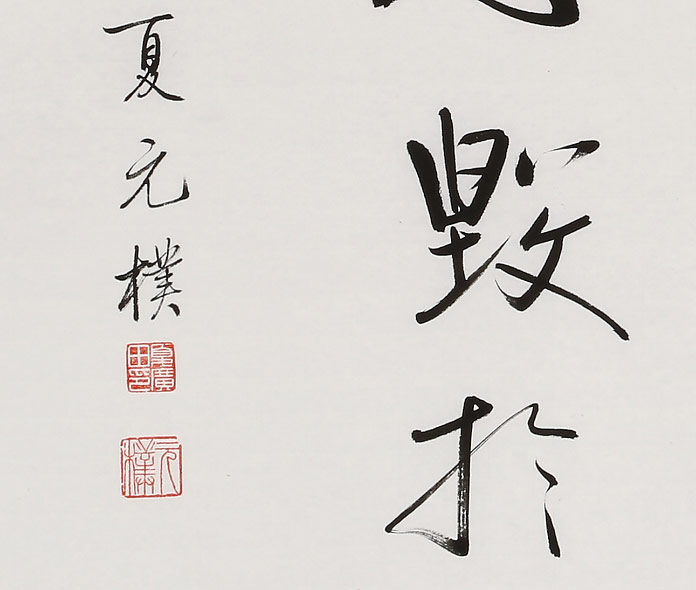 毀於
夏元樸
元樸